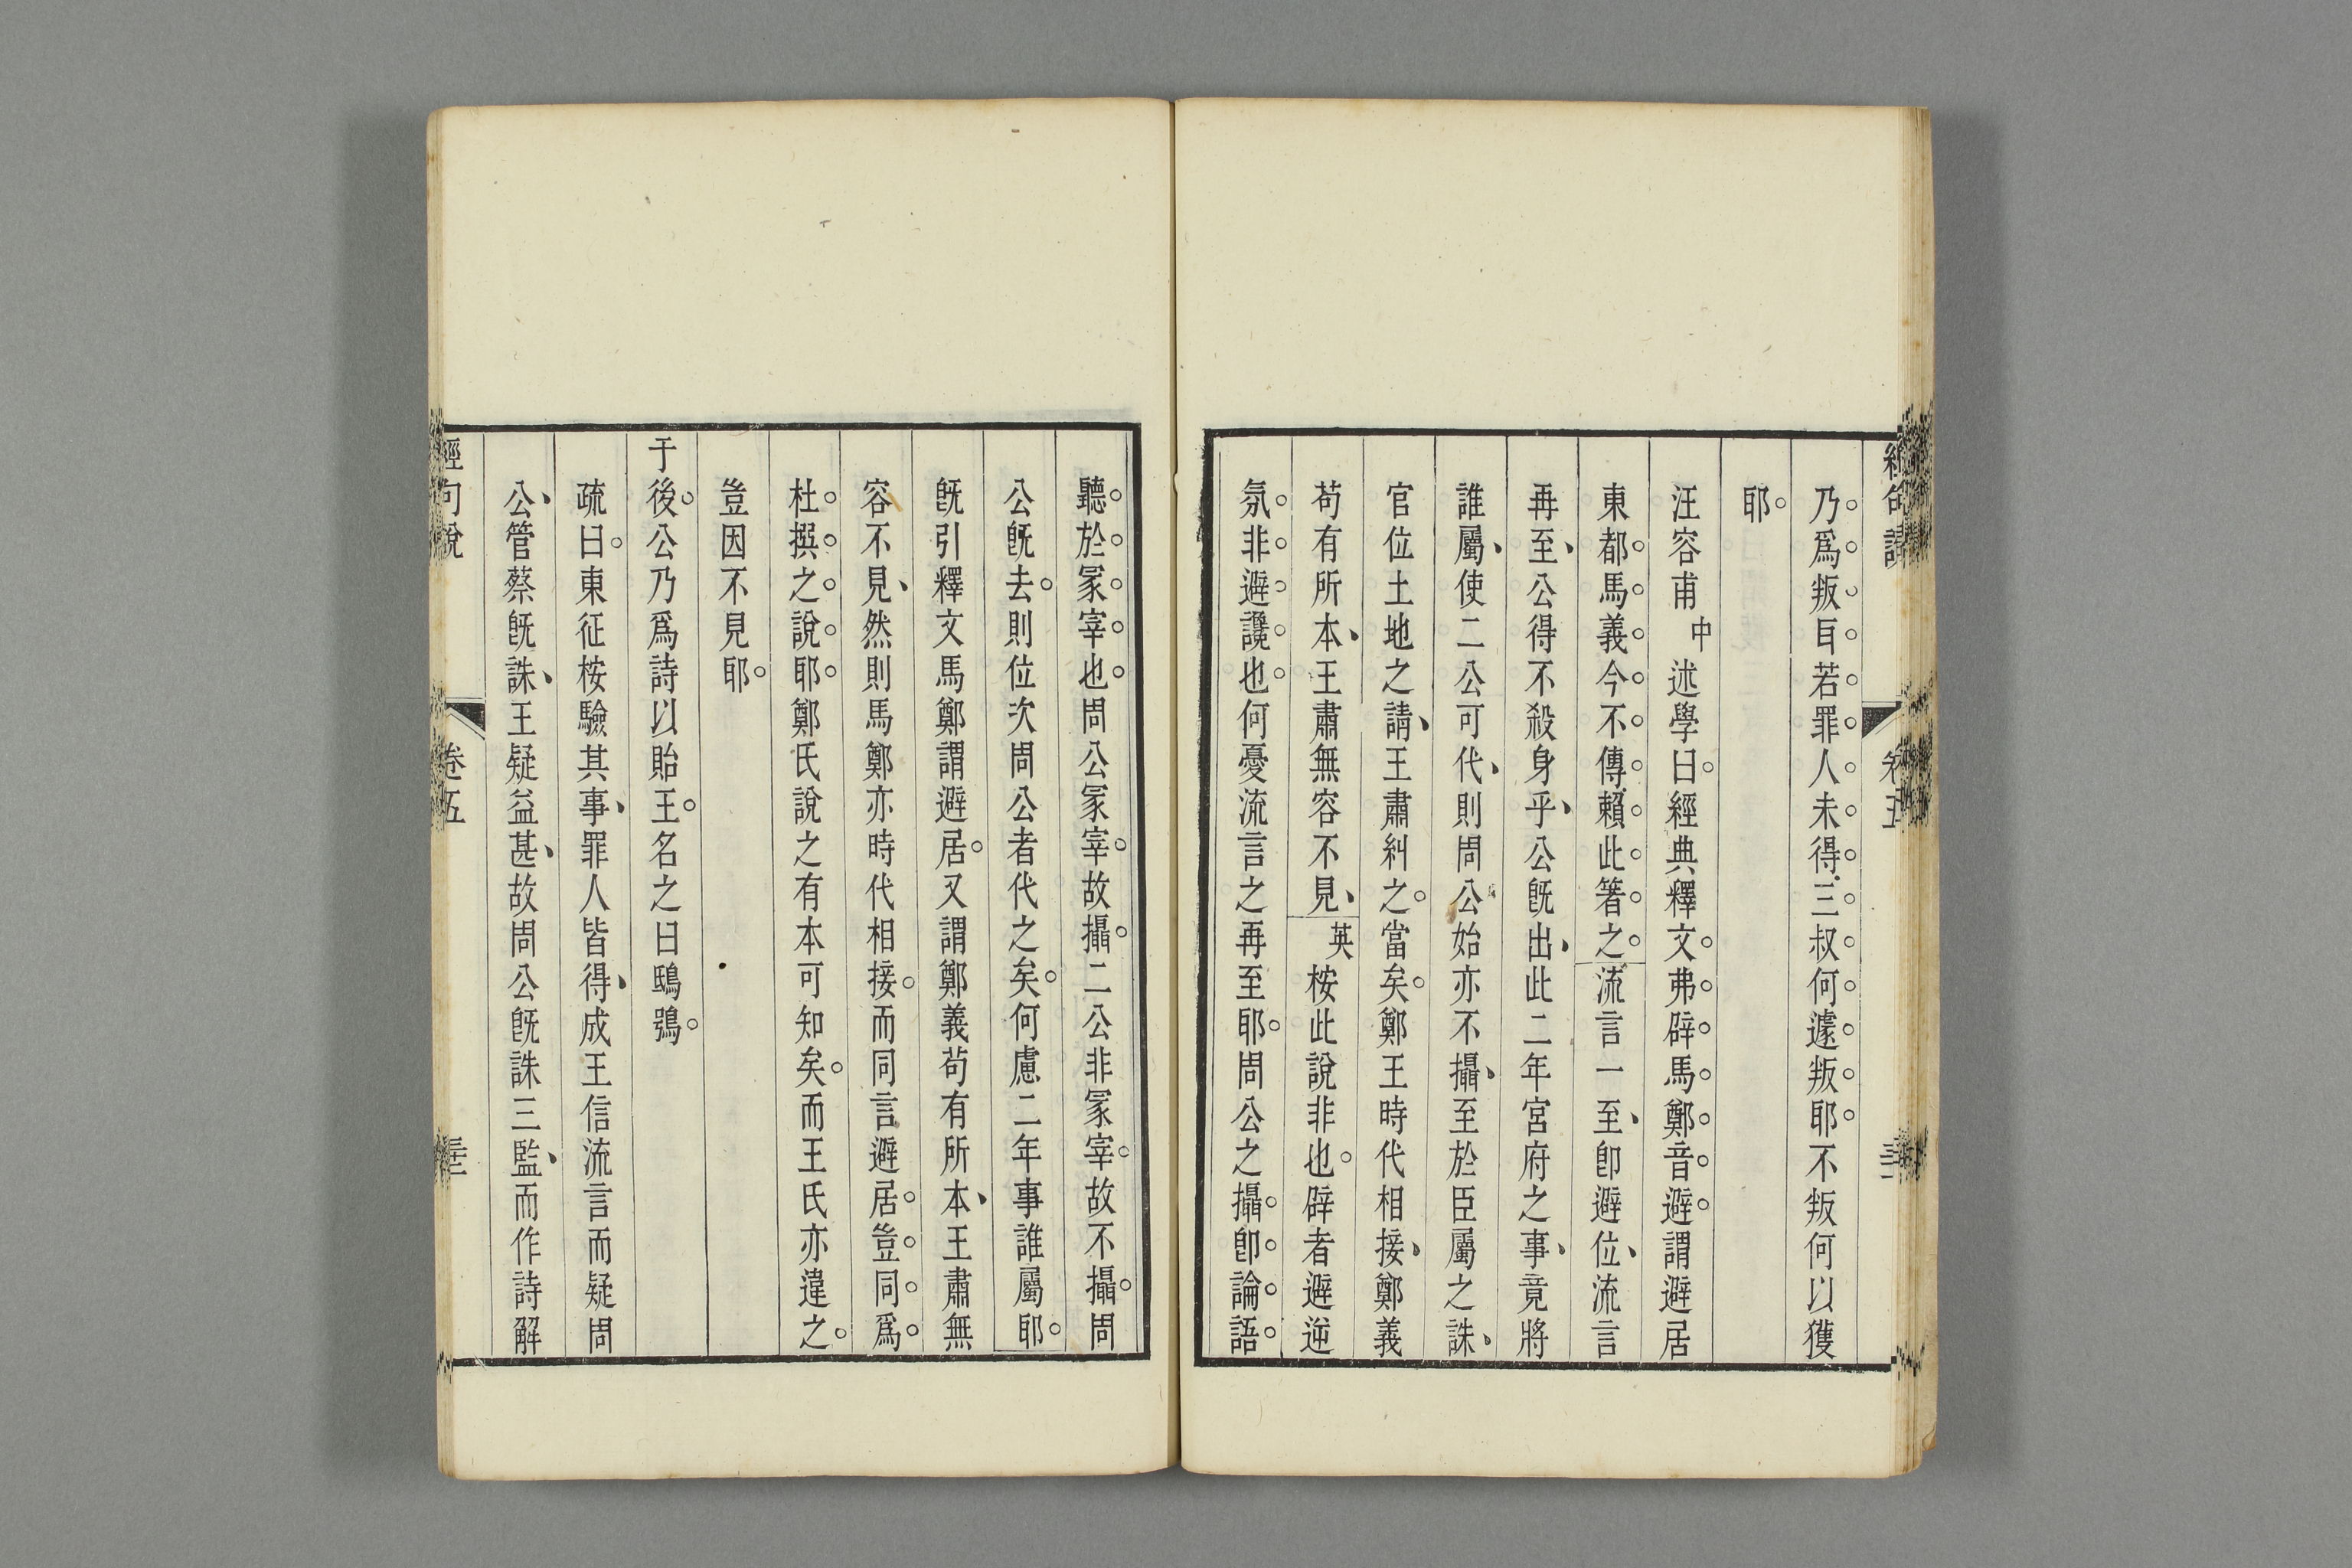 乃爲叛耳若罪人未得三叔何遽叛耶不叛何以獲
耶
汪容甫中述學曰經典釋文弗辟馬鄭音避謂避居
東都馬義今不傳賴此箸之流言一至卽避位流言
再至公得不殺身乎公旣出此二年宮府之事竟將
誰屬使二公可代則周公始亦不攝至於臣屬之誅
官位土地之請王肅糾之當矣鄭王時代相接鄭義
苟有所本王肅無容不見英桉此說非也辟者避逆
氛非避讒也何憂流言之再至耶周公之攝卽論語
聽於冢宰也周公冢宰故攝二公非冢宰故不攝周
公旣去則位次周公者代之矣何慮二年事誰屬耶
旣引釋文馬鄭謂避居又謂鄭義苟有所本王肅無
容不見然則馬鄭亦時代相接而同言避居豈同爲
杜撰之說耶鄭氏說之有本可知矣而王氏亦違之
豈因不見耶
于後公乃爲詩以貽王名之曰鴟鴞
疏曰東征桉驗其事罪人皆得成王信流言而疑周
公管蔡旣誅王疑益甚故周公旣誅三監而作詩解
經句說 卷五